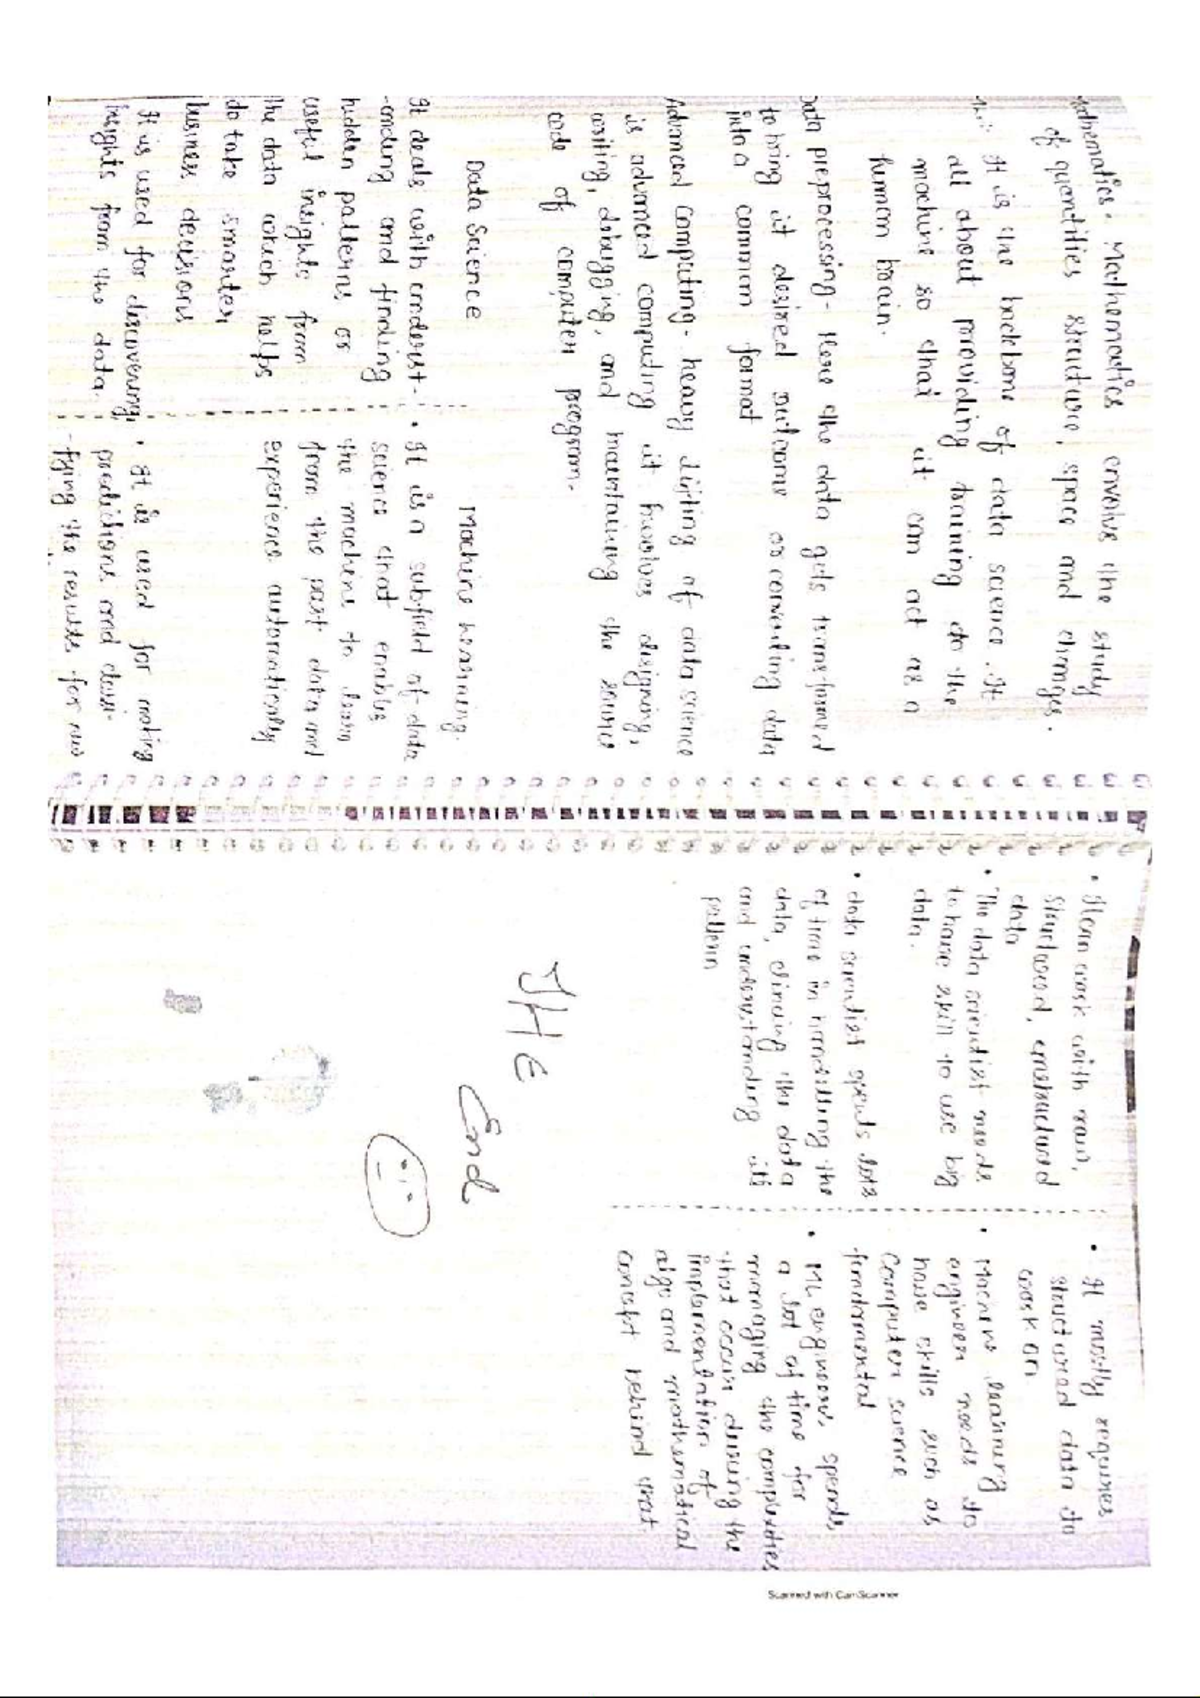 Mathematics - Mathematics envolve the study
of quantities structure, space and changes.
It is the backbone of data science. It
all about providing training to the
machine so that it can act as a
human brain.
Data preprocessing - Here the data gets transformed
to bring it desired outcome or converting data
into a common format
Advanced computing - heavy lifting of data science
is advanced computing it involves designing,
writing, debugging, and maintaining the source
code of computer program.
Data Science
It deals with underst-
-anding and finding
hidden patterns or
useful insights from
the data which helps
to take smarter
business decisions
It is used for discovering
insights from the data.
Machine learning.
• It is a subfield of data
science that enables
the machine to learn
from the past data and
experience automatically
• It is used for making
predictions and classi-
-fying the results for new
• It can work with raw,
structured, unstructured
data
• The data scientist needs
to have skill to use big
data.
• data scientist spents lots
of time in handling the
data, cleaning the data
and understanding its
pattern
• It mostly requires
structured data to
work on.
• Machine learning
engineer needs to
have skills such as
Computer science
fundamental
• ML engineer spends
a lot of time for
managing the complexities
that occur during the
implementation of
algo and mathematical
concept behind that
THE
End
Scanned with CamScanner